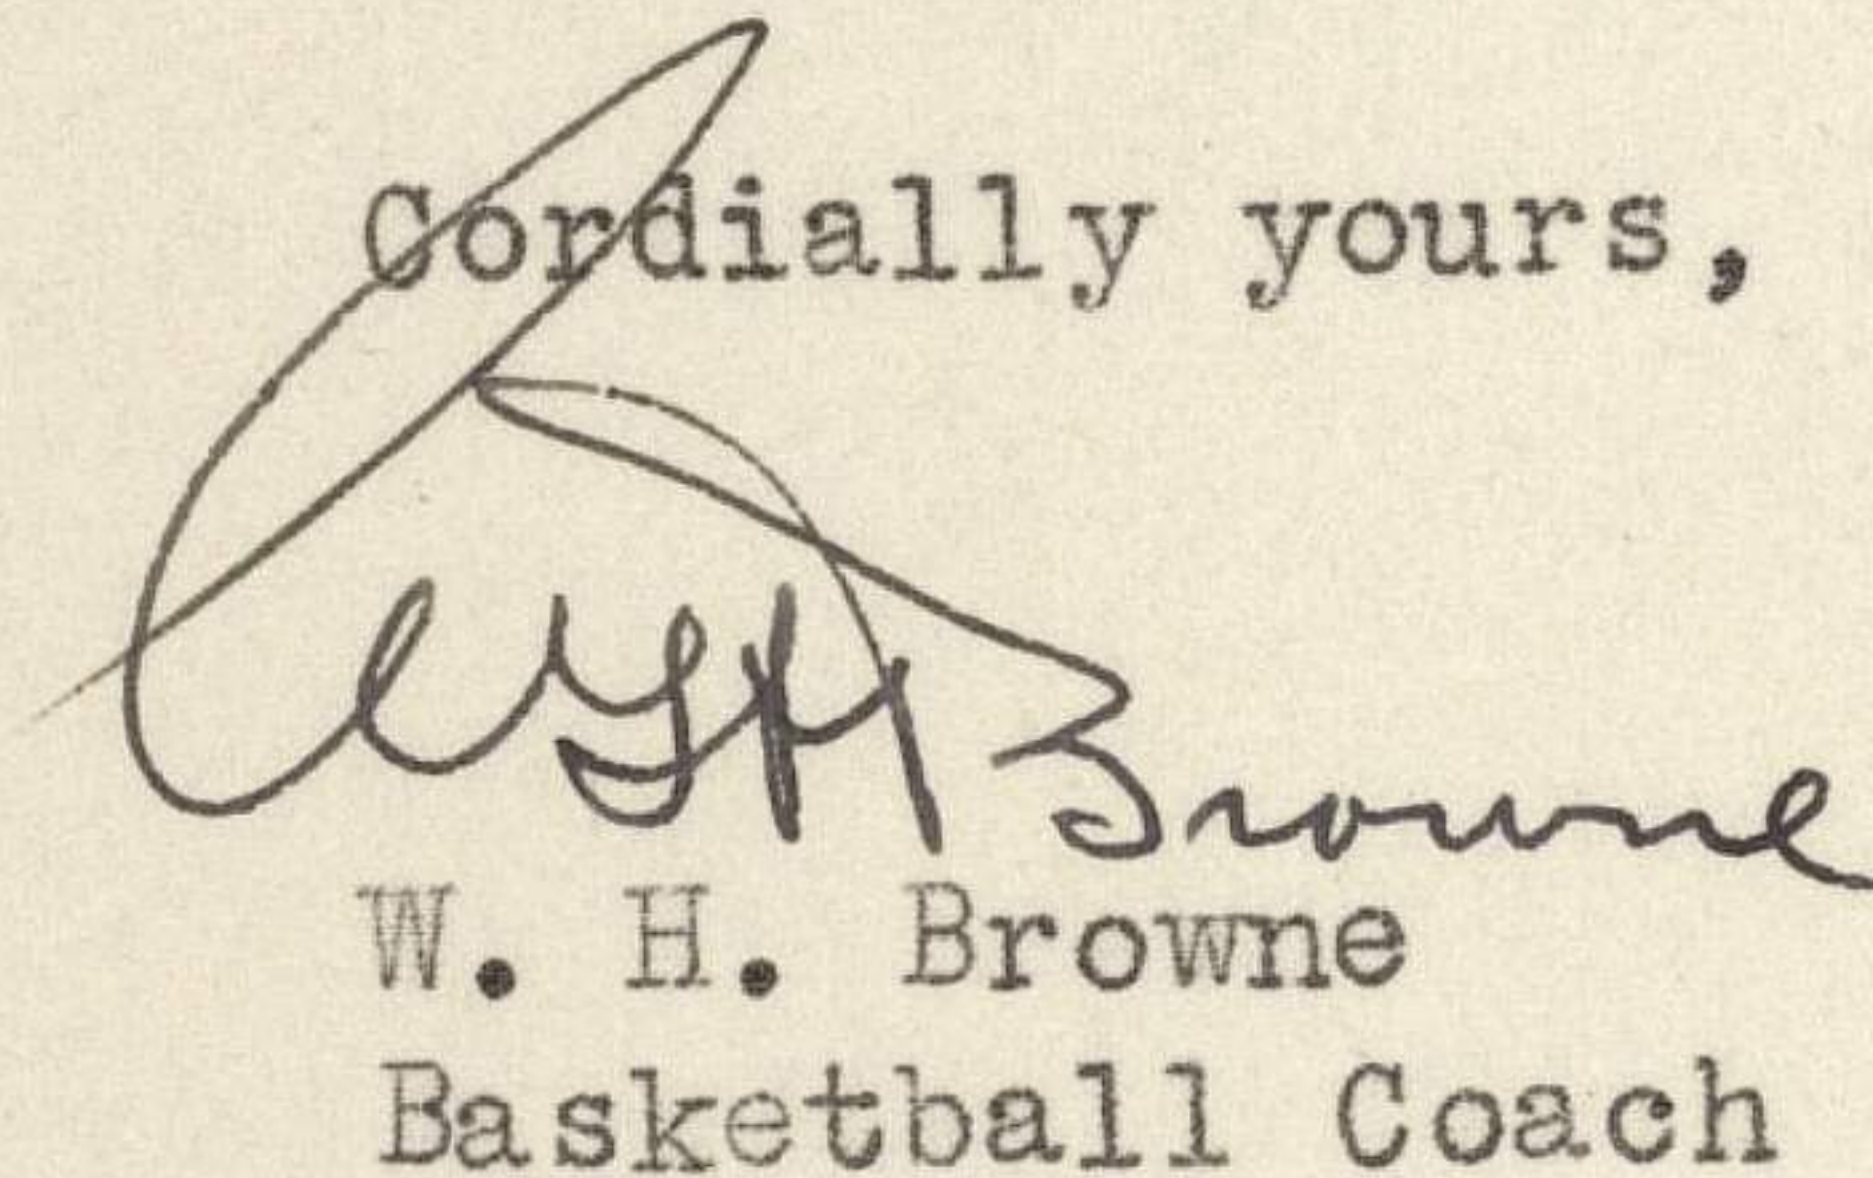 Cordially yours,
WH Browne
W. H. Browne
Basketball Coach